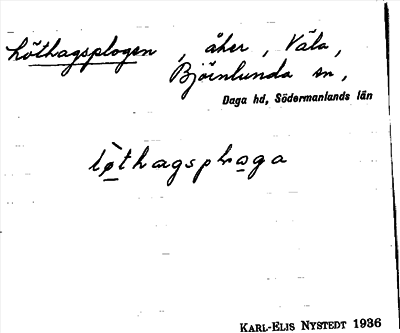 Löthagsplogen, åker, Väla,
Björnlunda sn,
Daga hd, Södermanlands län
lø̀thagsplωga
KARL-ELIS NYSTEDT 1936